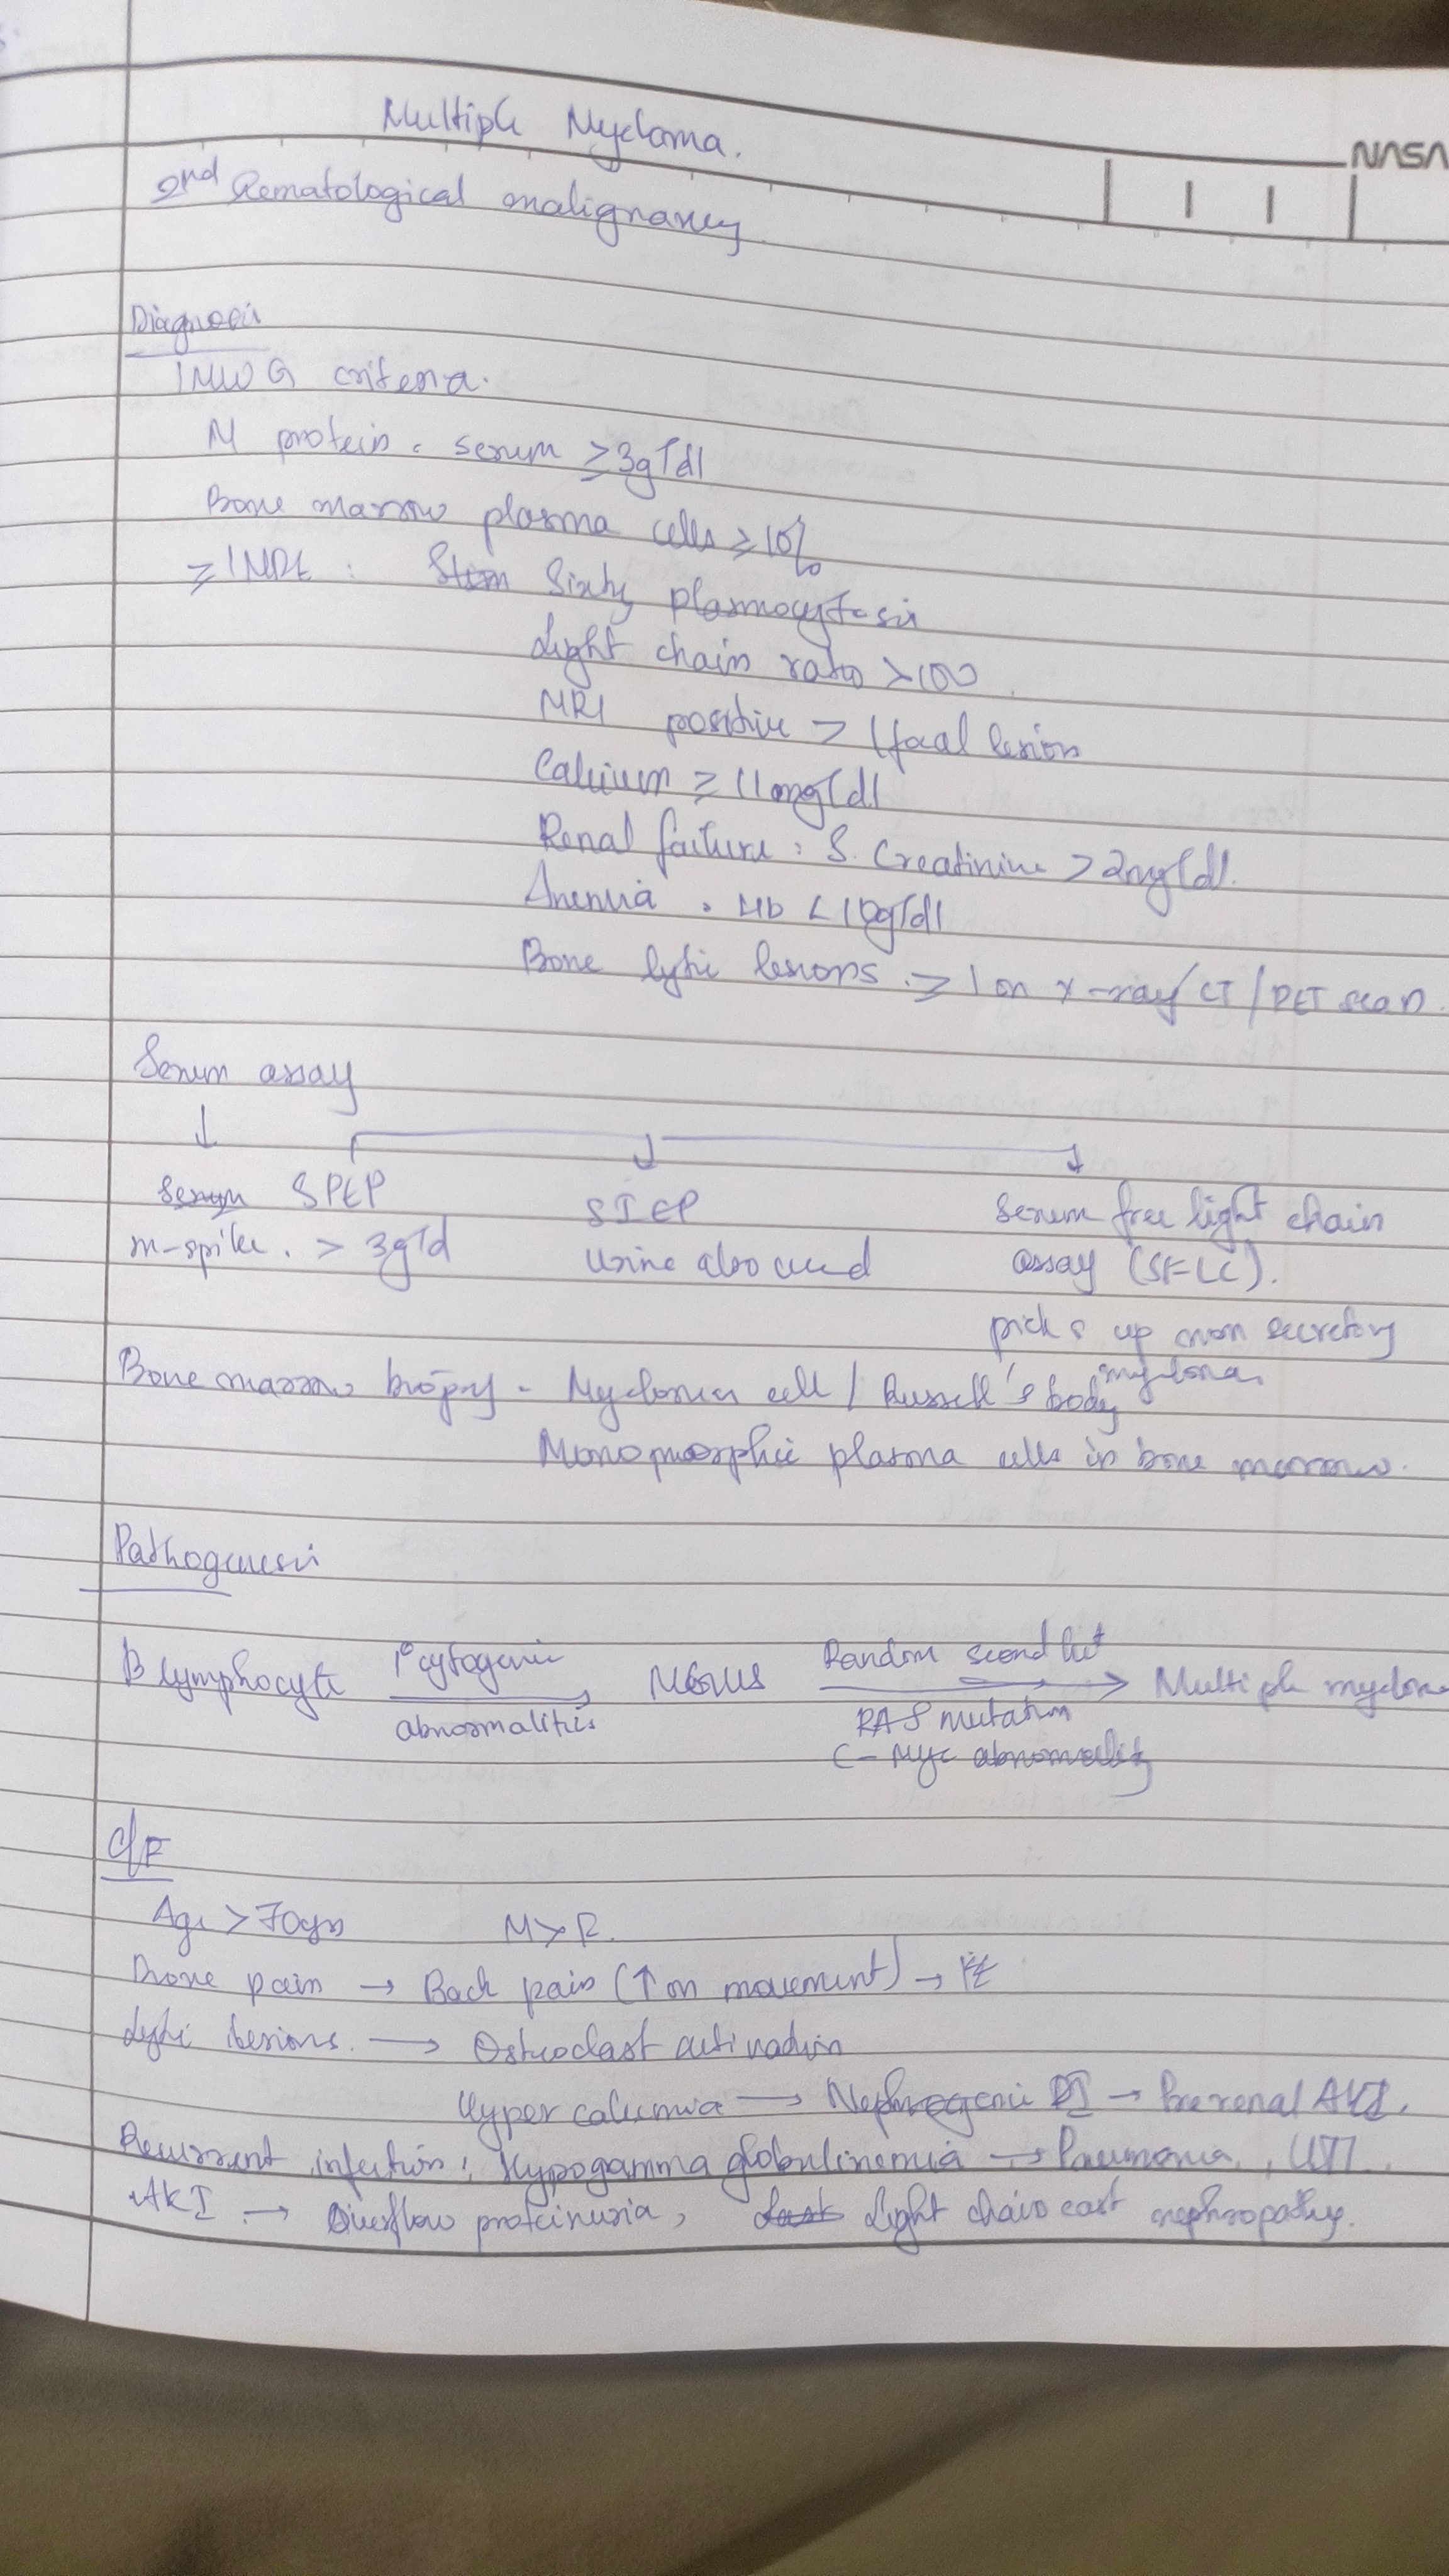 Multiple Myeloma.
NASA
2nd Hematological malignancy
Diagnosis
IMWG criteria.
M protein : serum ≥3g/dl
Bone marrow plasma cells ≥10%
≥1MDE : Sixty plasmocytosis
Light chain ratio >100
MRI positive > 1 focal lesion
Calcium ≥ 11mg/dl
Renal failure : S. Creatinine >2mg/dl.
Anemia . Hb <10g/dl
Bone lytic lesions . ≥ 1 on x-ray/CT/PET scan.
Serum assay
↓
SPEP SIEP Serum free light chain
m-spike. > 3g/d Urine also used assay (SFLC).
picks up non secretory
myeloma
Bone marrow biopsy - Myeloma cell / Russell's body
Monomorphic plasma cells in bone marrow.
Pathogenesis
B lymphocyte 1° cytogenic abnormalities → MGUS Random second hit → Multiple myeloma
RAS mutation
C-Myc abnormality
C/F
Age >70yrs M>F.
Bone pain → Back pain (↑ on movement) →
Lytic lesions. → Osteoclast activation
Hypercalcemia → Nephrogenic DI → Prerenal AKI.
Recurrent infection : Hypogammaglobulinemia → Pneumonia, UTI
AKI → Overflow proteinuria, Light chain cast nephropathy.